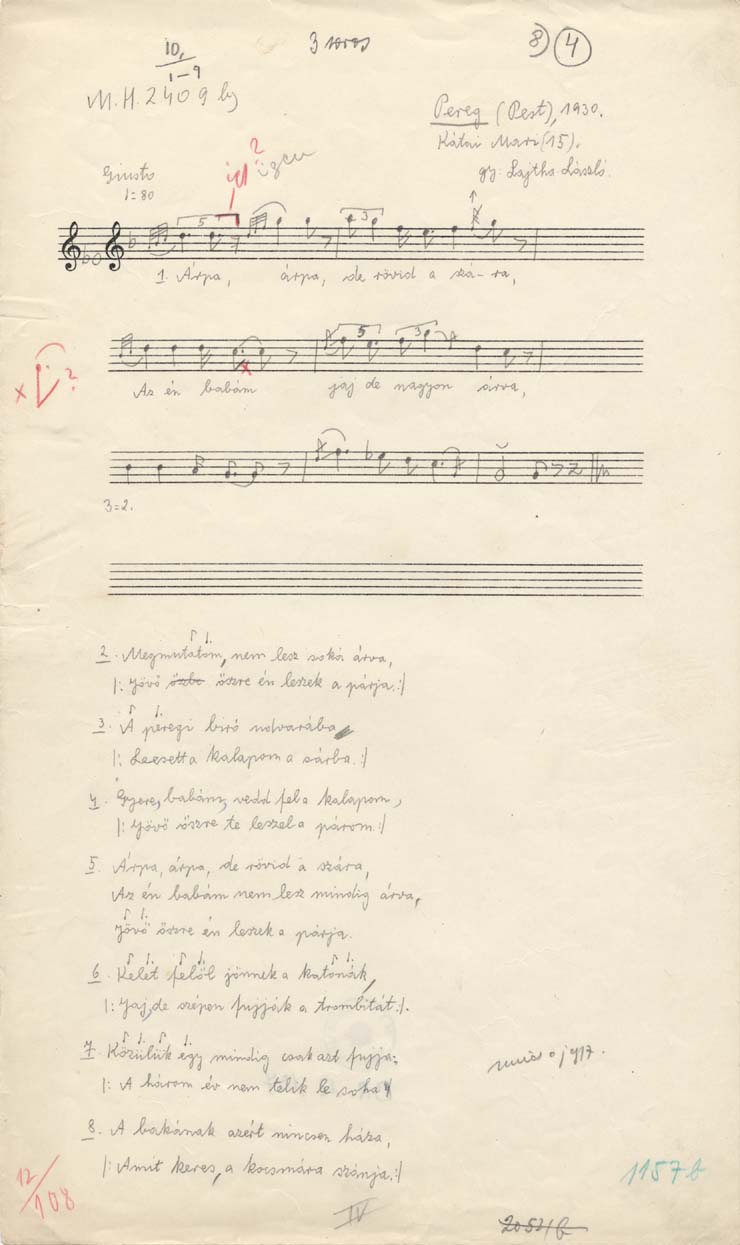 10,
1–9
3 soros
8) 4
M.H. 2409 b)
Pereg (Pest), 1930.
Kátai Mari (15).
gy. Lajtha László.
Giusto
1=80
?
1. Árpa, árpa, de rövid a szá-ra,
x ?
x
5 3
5 3
Az én babám jaj de nagyon árva,
3=2.
2. Megmutatom, nem lesz soká árva,
|: Jövő őszbe őszre én leszek a párja. :|
3. A peregi biró udvarába
|: Leesett a kalapom a sárba. :|
4. Gyere, babám, vedd fel a kalapom,
|: Jövő őszre te leszel a párom. :|
5. Árpa, árpa, de rövid a szára,
Az én babám nem lesz mindig árva,
Jövő őszre én leszek a párja.
6. Kelet felől jönnek a katonák,
|: Jaj, de szépen fujják a trombitát. :|
7. Közülük egy mindig csak azt fujja:
|: A három év nem telik le soha
8. A bakának azért nincsen háza,
|: Amit keres, a kocsmára szánja. :|
12/108
1157 b
IV